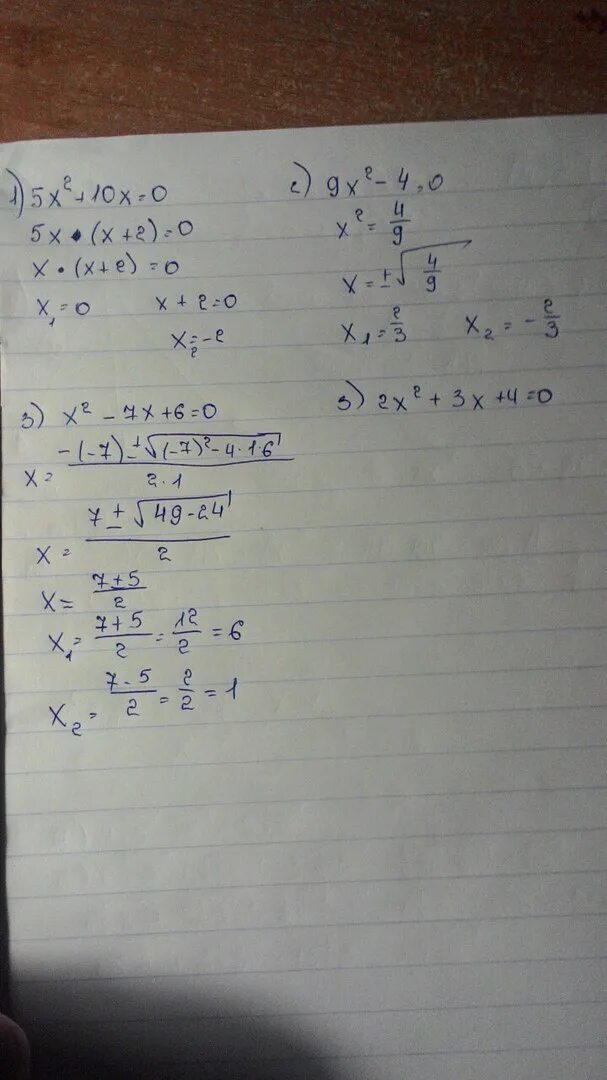 1) 5x² + 10x = 0
5x • (x + 2) = 0
x • (x + 2) = 0
x₁ = 0 x + 2 = 0
x₂ = -2
2) 9x² - 4 = 0
x² = 4/9
x = ±√(4/9)
x₁ = 2/3 x₂ = -2/3
3) x² - 7x + 6 = 0
x = (-(-7) ± √((-7)² - 4 · 1 · 6)) / (2 · 1)
x = (7 ± √(49 - 24)) / 2
x = (7 ± 5) / 2
x₁ = (7 + 5) / 2 = 12/2 = 6
x₂ = (7 - 5) / 2 = 2/2 = 1
3) 2x² + 3x + 4 = 0